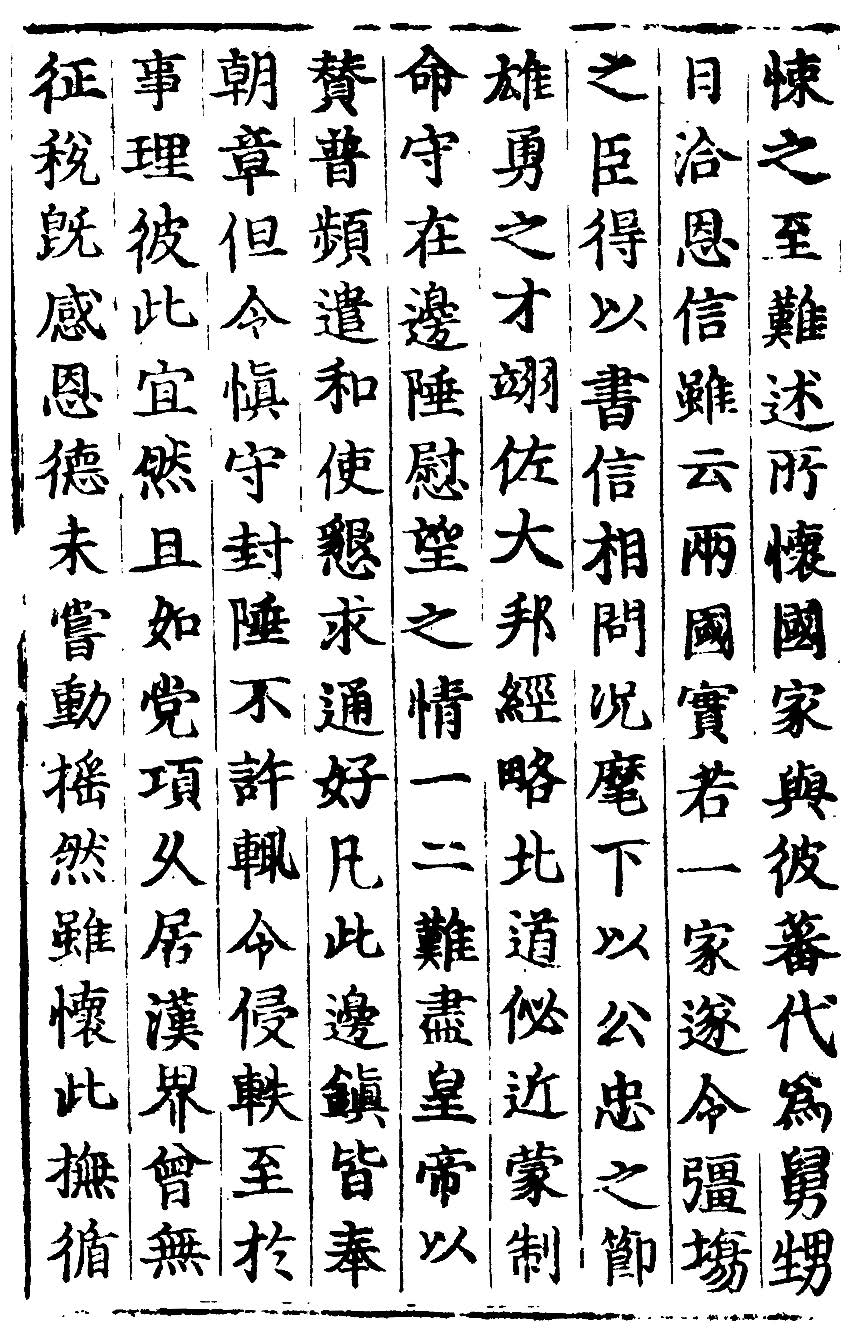 悚之至難述所懷國家與彼蕃代爲舅甥
日洽恩信雖云兩國實若一家遂令彊場
之臣得以書信相問况麾下以公忠之節
雄勇之才翊佐大邦經略北道佖近蒙制
命守在邊陲慰望之情一二難盡皇帝以
贊普頻遣和使懇求通好凡此邊鎭皆奉
朝章但令愼守封陲不許輒令侵軼至於
事理彼此宜然且如党項久居漢界曾無
征稅旣感恩德未嘗動揺然雖懷此撫循